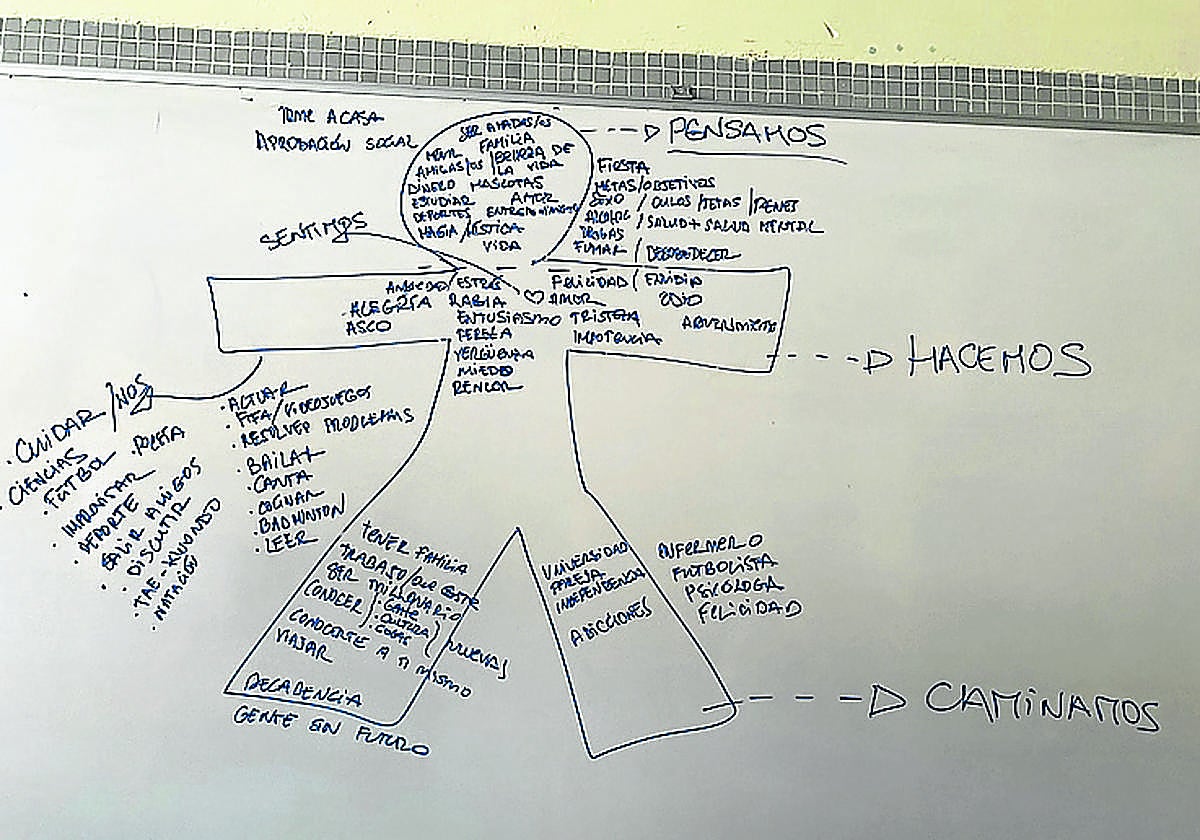 TEME A CASA
APROBACIÓN SOCIAL
SER AMADAS/OS
MÓVIL FAMILIA
AMIGAS/OS / BELLEZA DE LA VIDA
DINERO MASCOTAS
ESTUDIAR AMOR
DEPORTES ENTRETENIMIENTO
MAGIA/MÍSTICA
VIDA
PENSAMOS
FIESTA
METAS/OBJETIVOS
SEXO / CULOS/TETAS/PENES
ALCOHOL / SALUD + SALUD MENTAL
DROGAS
FUMAR / DESOBEDECER
SENTIMOS
ANSIEDAD/ESTRÉS
ALEGRÍA RABIA
ASCO
ENTUSIASMO
PEREZA
VERGÜENZA
MIEDO
RENCOR
FELICIDAD / ENVIDIA
AMOR ODIO
TRISTEZA
IMPOTENCIA
HACEMOS
CUIDAR/NOS
CIENCIAS
FÚTBOL
POESÍA
IMPROVISAR
DEPORTE
SALIR AMIGOS
DISCUTIR
TAE-KWONDO
NATACIÓN
ACTUAR
FIFA/VIDEOJUEGOS
RESOLVER PROBLEMAS
BAILAR
CANTA
COCINAR
BADMINTON
LEER
TENER FAMILIA
TRABAJO/QUE GUSTE
SER MILLONARIO
CONOCER
GENTE
CULTURA
COSAS
NUEVAS
CONOCERTE A TI MISMO
VIAJAR
DECADENCIA
GENTE SIN FUTURO
UNIVERSIDAD
PAREJA
INDEPENDENCIA
ADICCIONES
ENFERMERO
FUTBOLISTA
PSICÓLOGA
FELICIDAD
CAMINAMOS